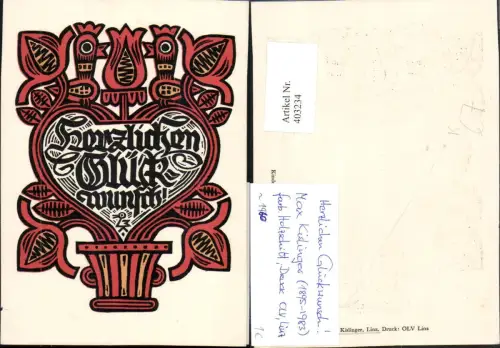 Herzlichen
Glück-
wunsch!
Artikel Nr.
403234
Herzlichen Glückwunsch!
Max Kislinger (1895-1983)
farb. Holzschnitt, Druck OLV, Linz
~ 1960
Kislinger, Linz, Druck: OLV Linz